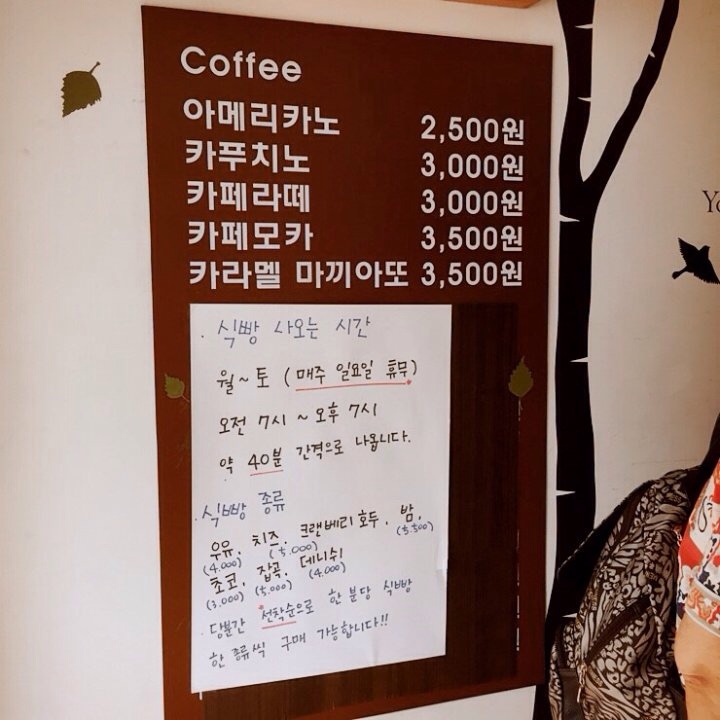 Coffee
아메리카노 2,500원
카푸치노 3,000원
카페라떼 3,000원
카페모카 3,500원
카라멜 마끼아또 3,500원
· 식빵 나오는 시간
월~토 (매주 일요일 휴무)
오전 7시 ~ 오후 7시
약 40분 간격으로 나옵니다.
· 식빵 종류
우유, 치즈, 크랜베리 호두, 밤,
(4.000) (5.000) (5.500)
초코, 잡곡, 데니쉬
(3.000) (5.000) (4.000)
당분간 선착순으로 한 분당 식빵
한 종류씩 구매 가능합니다!!